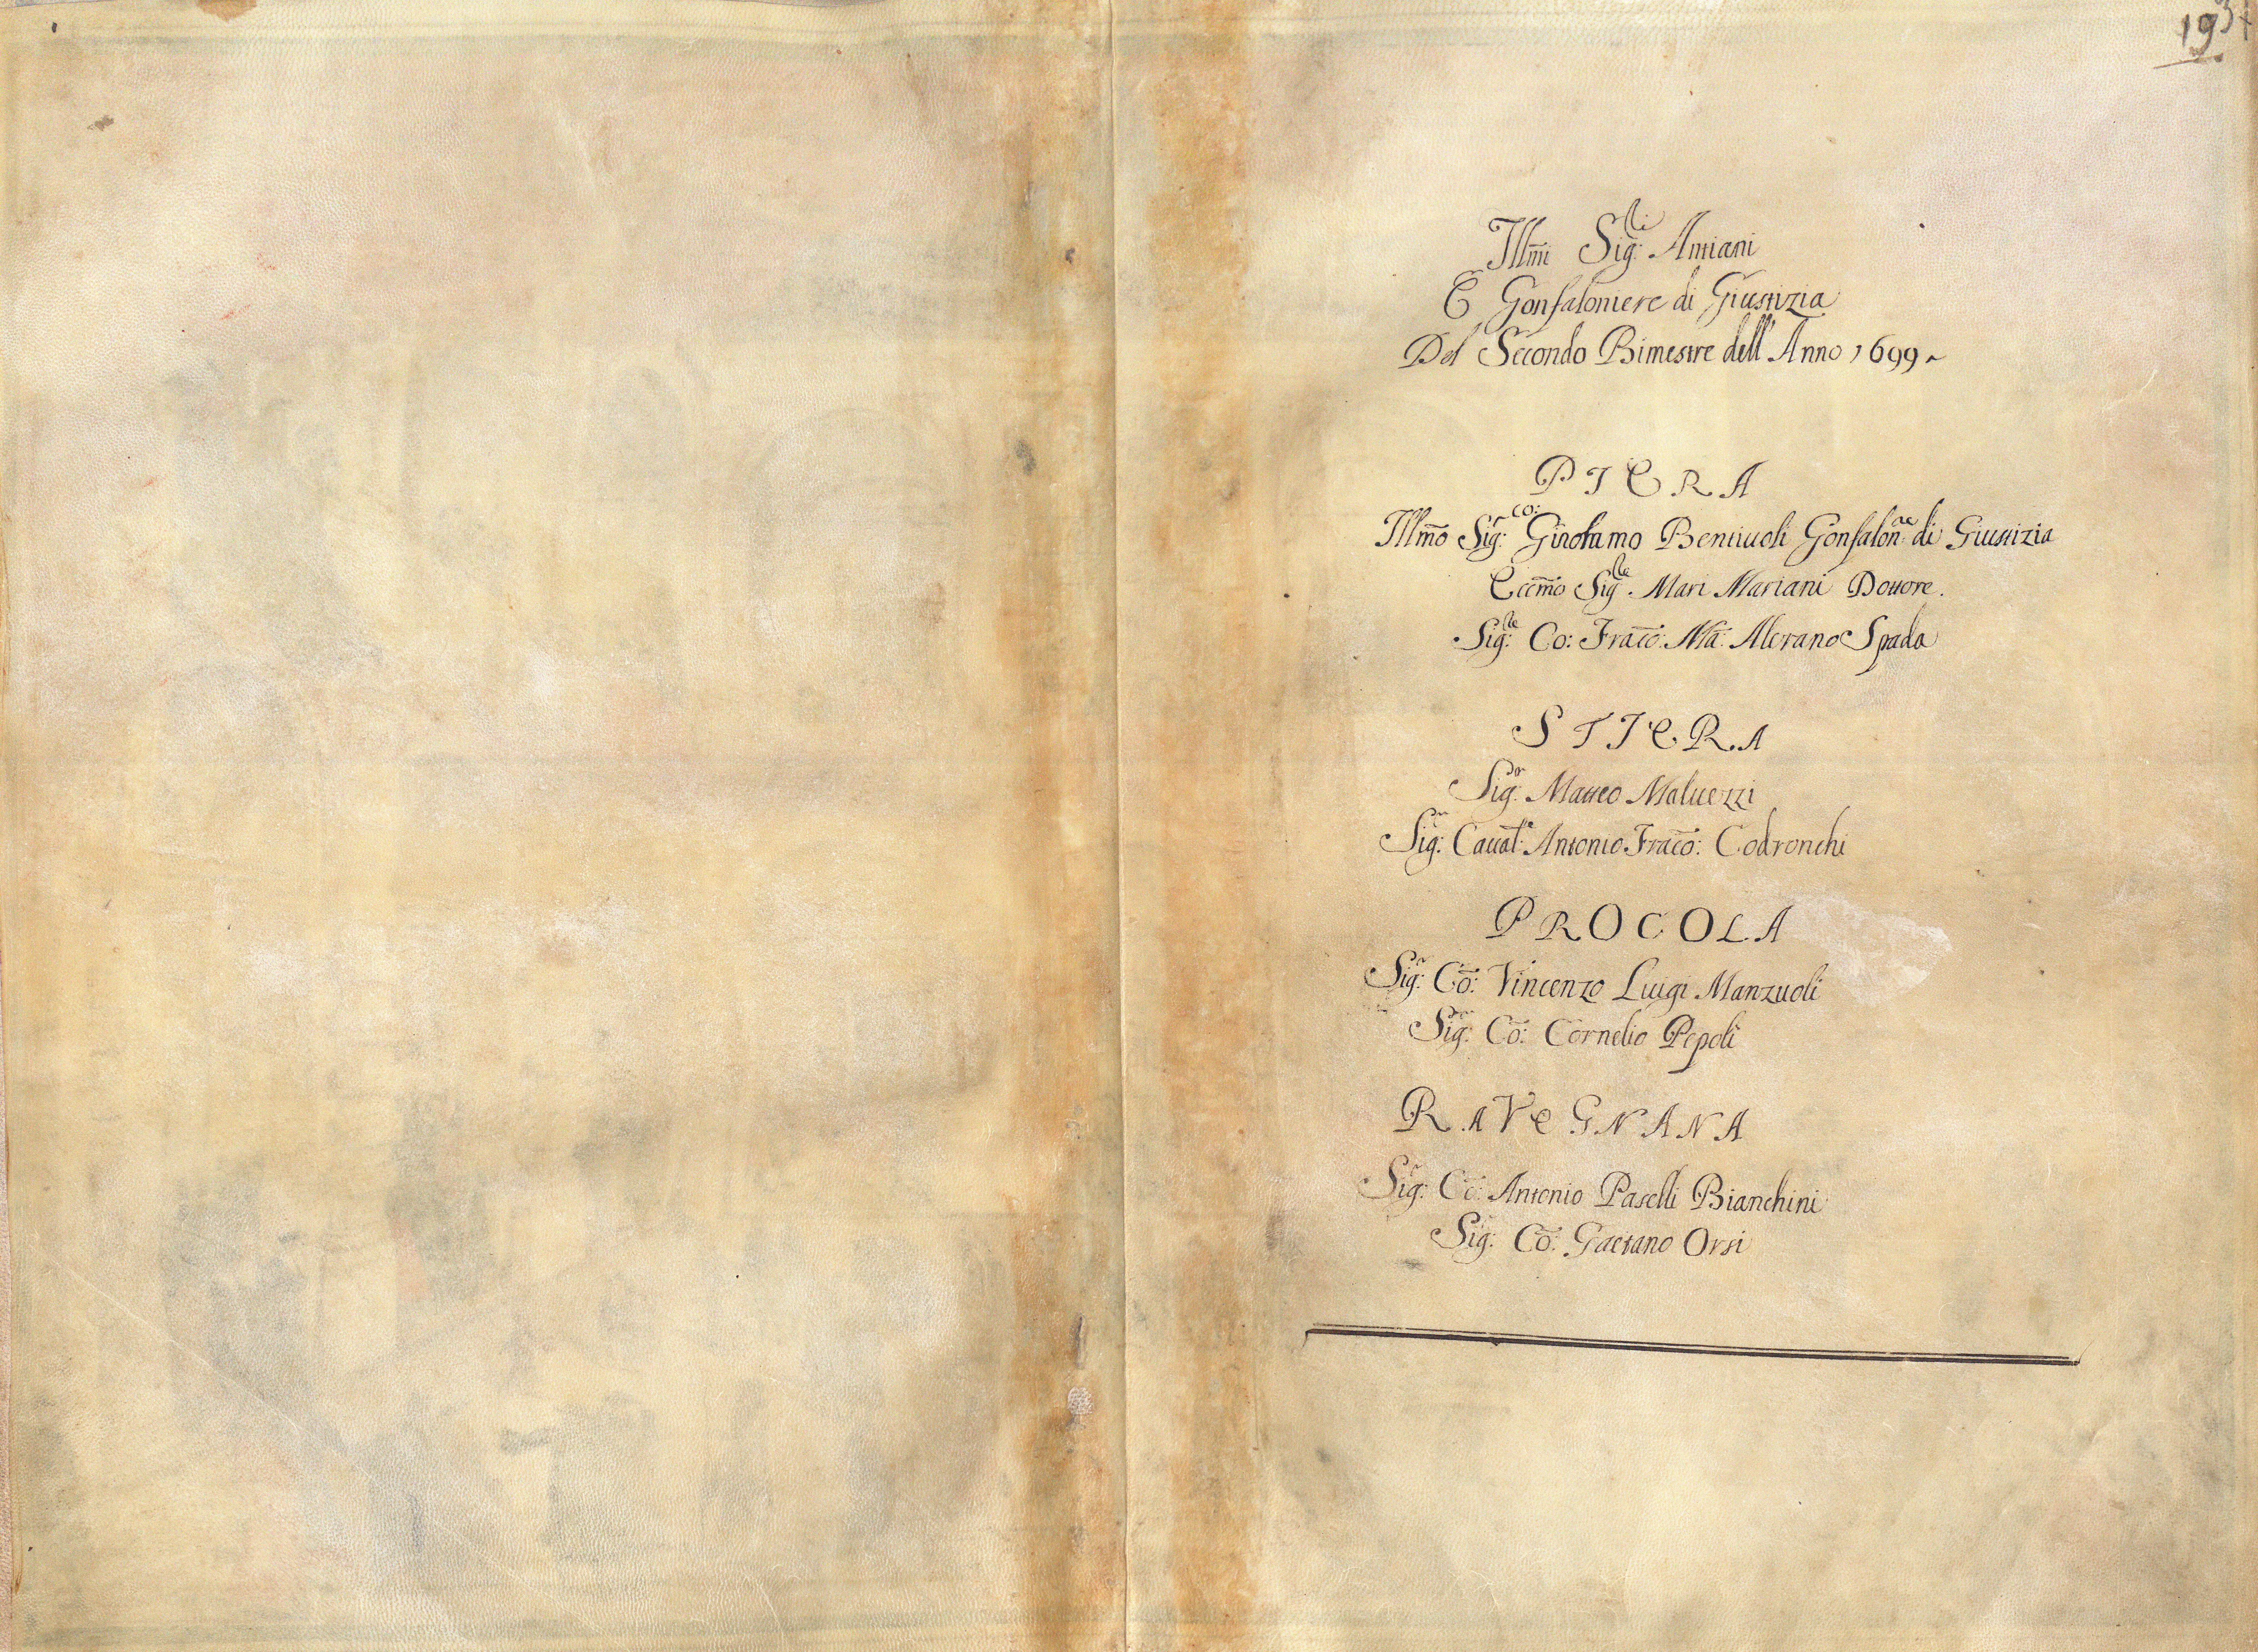 193
Illm̃i Sig:ri Antiani
E Gonfaloniere di Giustizia
Del Secondo Bimestre dell' Anno 1699
PIERA
Illm̃o Sig:r Co: Girolamo Bentiuoli Gonfalon:re di Giustizia
Eccm̃o Sig:re Mari Mariani Dottore.
Sig:re Co: Frac̃o: Mã: Alerano Spada
STIERA
Sig:r Matteo Maluezzi
Sig:r Caual:r Antonio Frac̃o: Codronchi
PROCOLA
Sig:r Cõ: Vincenzo Luigi Manzuoli
Sig:r Cõ: Cornelio Pepoli
RAVEGNANA
Sig:r Cõ: Antonio Paselli Bianchini
Sig:r Cõ: Gaetano Orsi